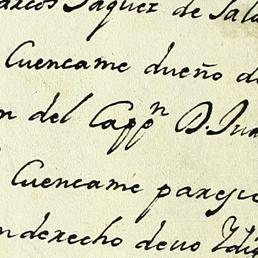 Marcos Jaquez de Sala
Cuencame dueño d
n del Cappn D. Jua
Cuencame pareje
n derecho de uo Ydi